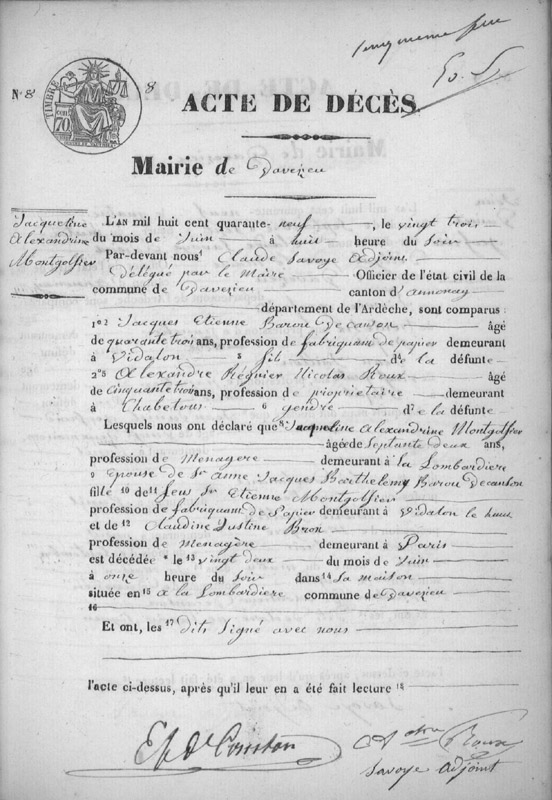 N.º 8
8
TIMBRE
70
ACTE DE DÉCÈS
Mairie de Davezieu
Jacqueline
Alexandrine
Montgolfier
L'AN mil huit cent quarante-neuf, le vingt trois,
du mois de Juin à huit heure du Soir
Par-devant nous¹ Claude Savoye Adjoint
délégué par le Maire Officier de l'état civil de la
commune de Davezieu canton d'annonay
département de l'Ardèche, sont comparus :
1º2 Jacques Etienne Barou De canson âgé
de quarante trois ans, profession de fabriquant de papier demeurant
à Vidalon 3 fils d4 la défunte
2º5 Alexandre Régnier Nicolas Roux âgé
de Cinquante trois ans, profession de propriétaire demeurant
à Chabetous 6 gendre d7 e la défunte
Lesquels nous ont déclaré que8 Jacqueline Alexandrine Montgolfier
âgée de Septante deux ans,
profession de Menagere demeurant à la Lombardiere
9 Epouse de Sr Anne Jacques Barthelemy Barou Decanson
fille 10 de11 feus Sr Etienne Montgolfier
profession de fabriquant de Papier demeurant à Vidalon le haut
et de 12 Claudine Justine Bron
profession de menagère demeurant à Paris
est décédée le 13 vingt deux du mois de Juin
à onze heure du Soir dans14 Sa maison
située en15 a la Lombardiere commune de Davezieu
16
Et ont, les 17 dits Signé avec nous
l'acte ci-dessus, après qu'il leur en a été fait lecture 18
Roux
Savoye adjoint